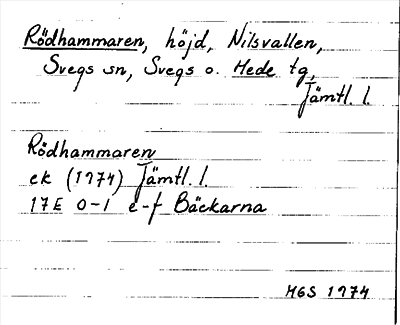 Rödhammaren, höjd, Nilsvallen,
Svegs sn, Svegs o. Hede tg,
Jämtl. l.
Rödhammaren
ek (1974) Jämtl. l.
17E 0-1 e-f Bäckarna
MGS 1974